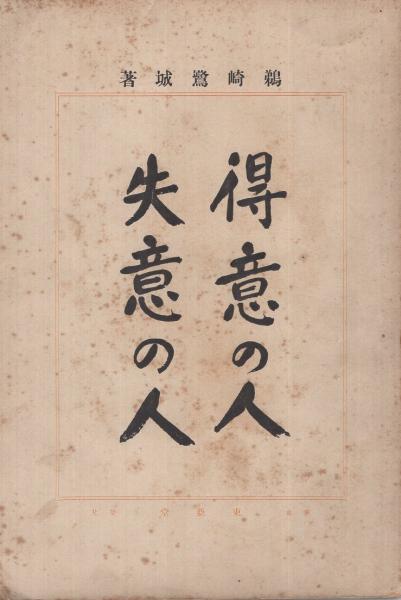 鵜崎鷺城著
得意の人
失意の人
東藝堂